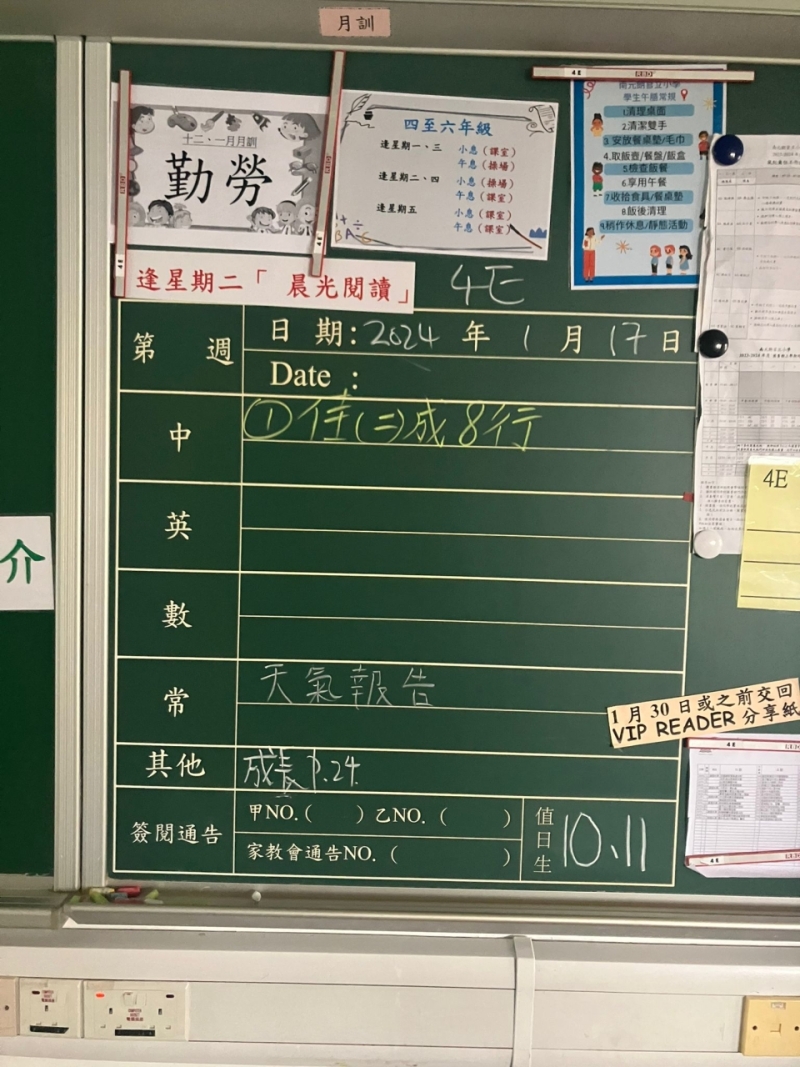 月訓
十二、一月月訓
勤勞
四至六年級
逢星期一、三 小息（課室）
午息（操場）
逢星期二、四 小息（操場）
午息（課室）
逢星期五 小息（課室）
午息（課室）
學生午膳常規
1.清理桌面
2.清潔雙手
3.安放餐桌墊/毛巾
4.取飯壺/餐盤/飯盒
5.檢查飯餐
6.享用午餐
7.收拾食具/餐桌墊
8.飯後清理
9.稍作休息/靜態活動
逢星期二「 晨光閱讀」
4E
第 週 日 期: 2024 年 1 月 17 日
Date :
中 ① 佳(二)成8行
英
數
常 天氣報告
其他 成長 P.24
簽閱通告 甲NO.( ) 乙NO. ( )
家教會通告NO. ( )
值日生 10、11
介
4E
1月30日或之前交回
VIP READER 分享紙